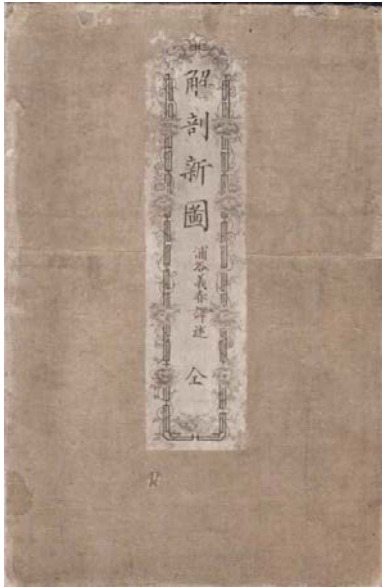 解剖新圖
浦谷義春譯述
全